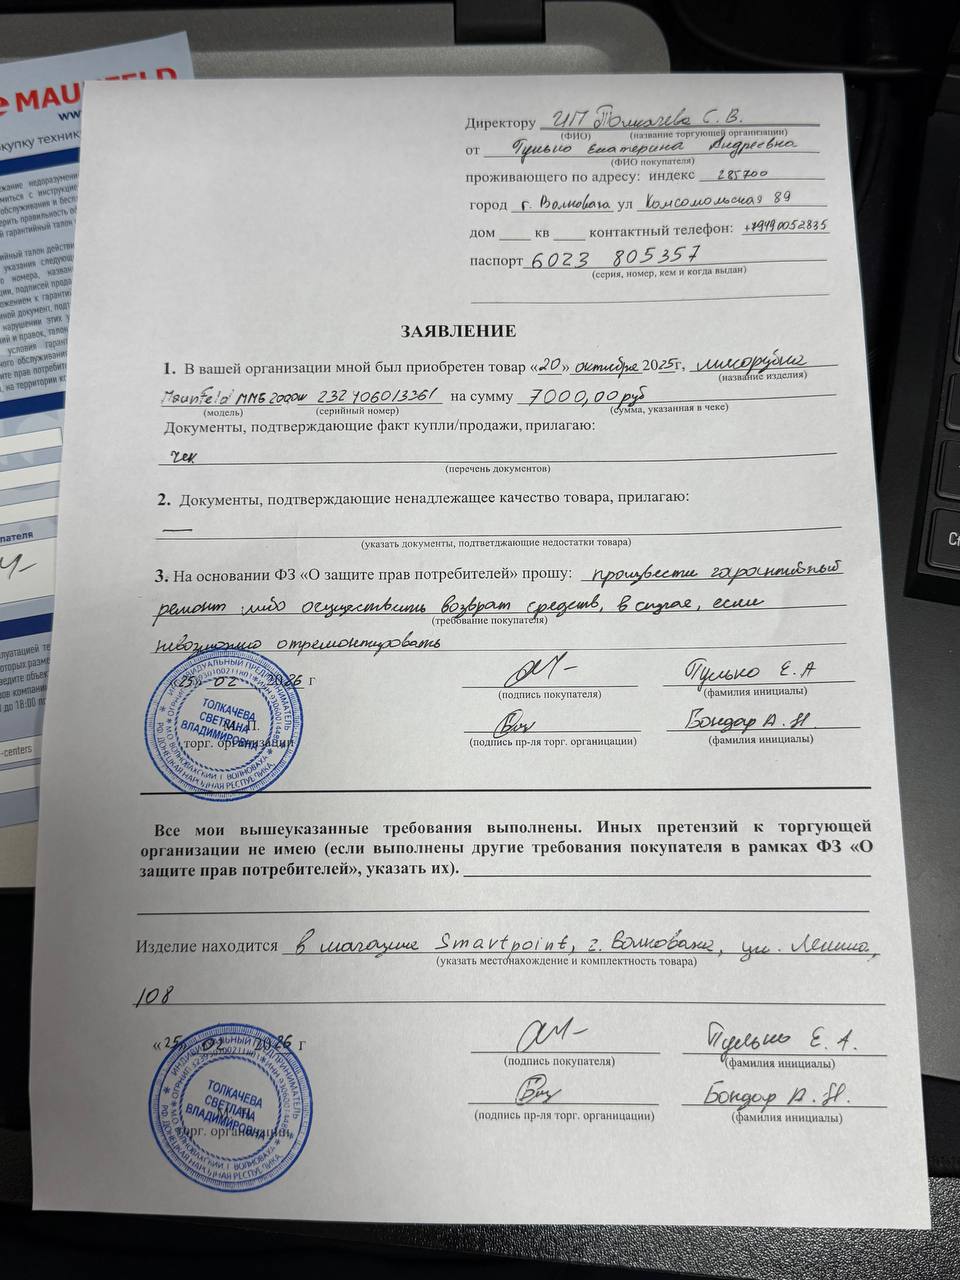 MAUNFELD
www
покупку техник
Директору ИП Толкачева С. В.
(ФИО) (название торгующей организации)
от Гулько Екатерина Андреевна
(ФИО покупателя)
проживающего по адресу: индекс 285700
город г. Волноваха ул Комсомольская 89
дом кв контактный телефон: +79490052835
паспорт 6023 805357
(серия, номер, кем и когда выдан)
ЗАЯВЛЕНИЕ
1. В вашей организации мной был приобретен товар «20» октября 2025г, мясорубка
(название изделия)
Maunfeld 232406013361 на сумму 7000,00 руб
(модель) (серийный номер) (сумма, указанная в чеке)
Документы, подтверждающие факт купли/продажи, прилагаю:
чек
(перечень документов)
2. Документы, подтверждающие ненадлежащее качество товара, прилагаю:
—
(указать документы, подтветджающие недостатки товара)
3. На основании ФЗ «О защите прав потребителей» прошу: произвести гарантийный
ремонт либо осуществить возврат средств, в случае, если
(требование покупателя)
невозможно отремонтировать
«25» 02 2026 г
(подпись покупателя)
Гулько Е. А
(фамилия инициалы)
М.П.
торг. организации
(подпись пр-ля торг. органицации)
Бондар А. Н.
(фамилия инициалы)
ИНДИВИДУАЛЬНЫЙ ПРЕДПРИНИМАТЕЛЬ
ТОЛКАЧЕВА
СВЕТЛАНА
ВЛАДИМИРОВНА
РФ, ДОНЕЦКАЯ НАРОДНАЯ РЕСПУБЛИКА,
Все мои вышеуказанные требования выполнены. Иных претензий к торгующей
организации не имею (если выполнены другие требования покупателя в рамках ФЗ «О
защите прав потребителей», указать их).
Изделие находится в магазине Smartpoint, г. Волноваха, ул. Ленина,
(указать местонахождение и комплектность товара)
108
«25» 02 2026 г
(подпись покупателя)
Гулько Е. А.
(фамилия инициалы)
торг. организации
(подпись пр-ля торг. органицации)
Бондар А. Н.
(фамилия инициалы)
ИНДИВИДУАЛЬНЫЙ ПРЕДПРИНИМАТЕЛЬ
ТОЛКАЧЕВА
СВЕТЛАНА
ВЛАДИМИРОВНА
РФ, ДОНЕЦКАЯ НАРОДНАЯ РЕСПУБЛИКА,